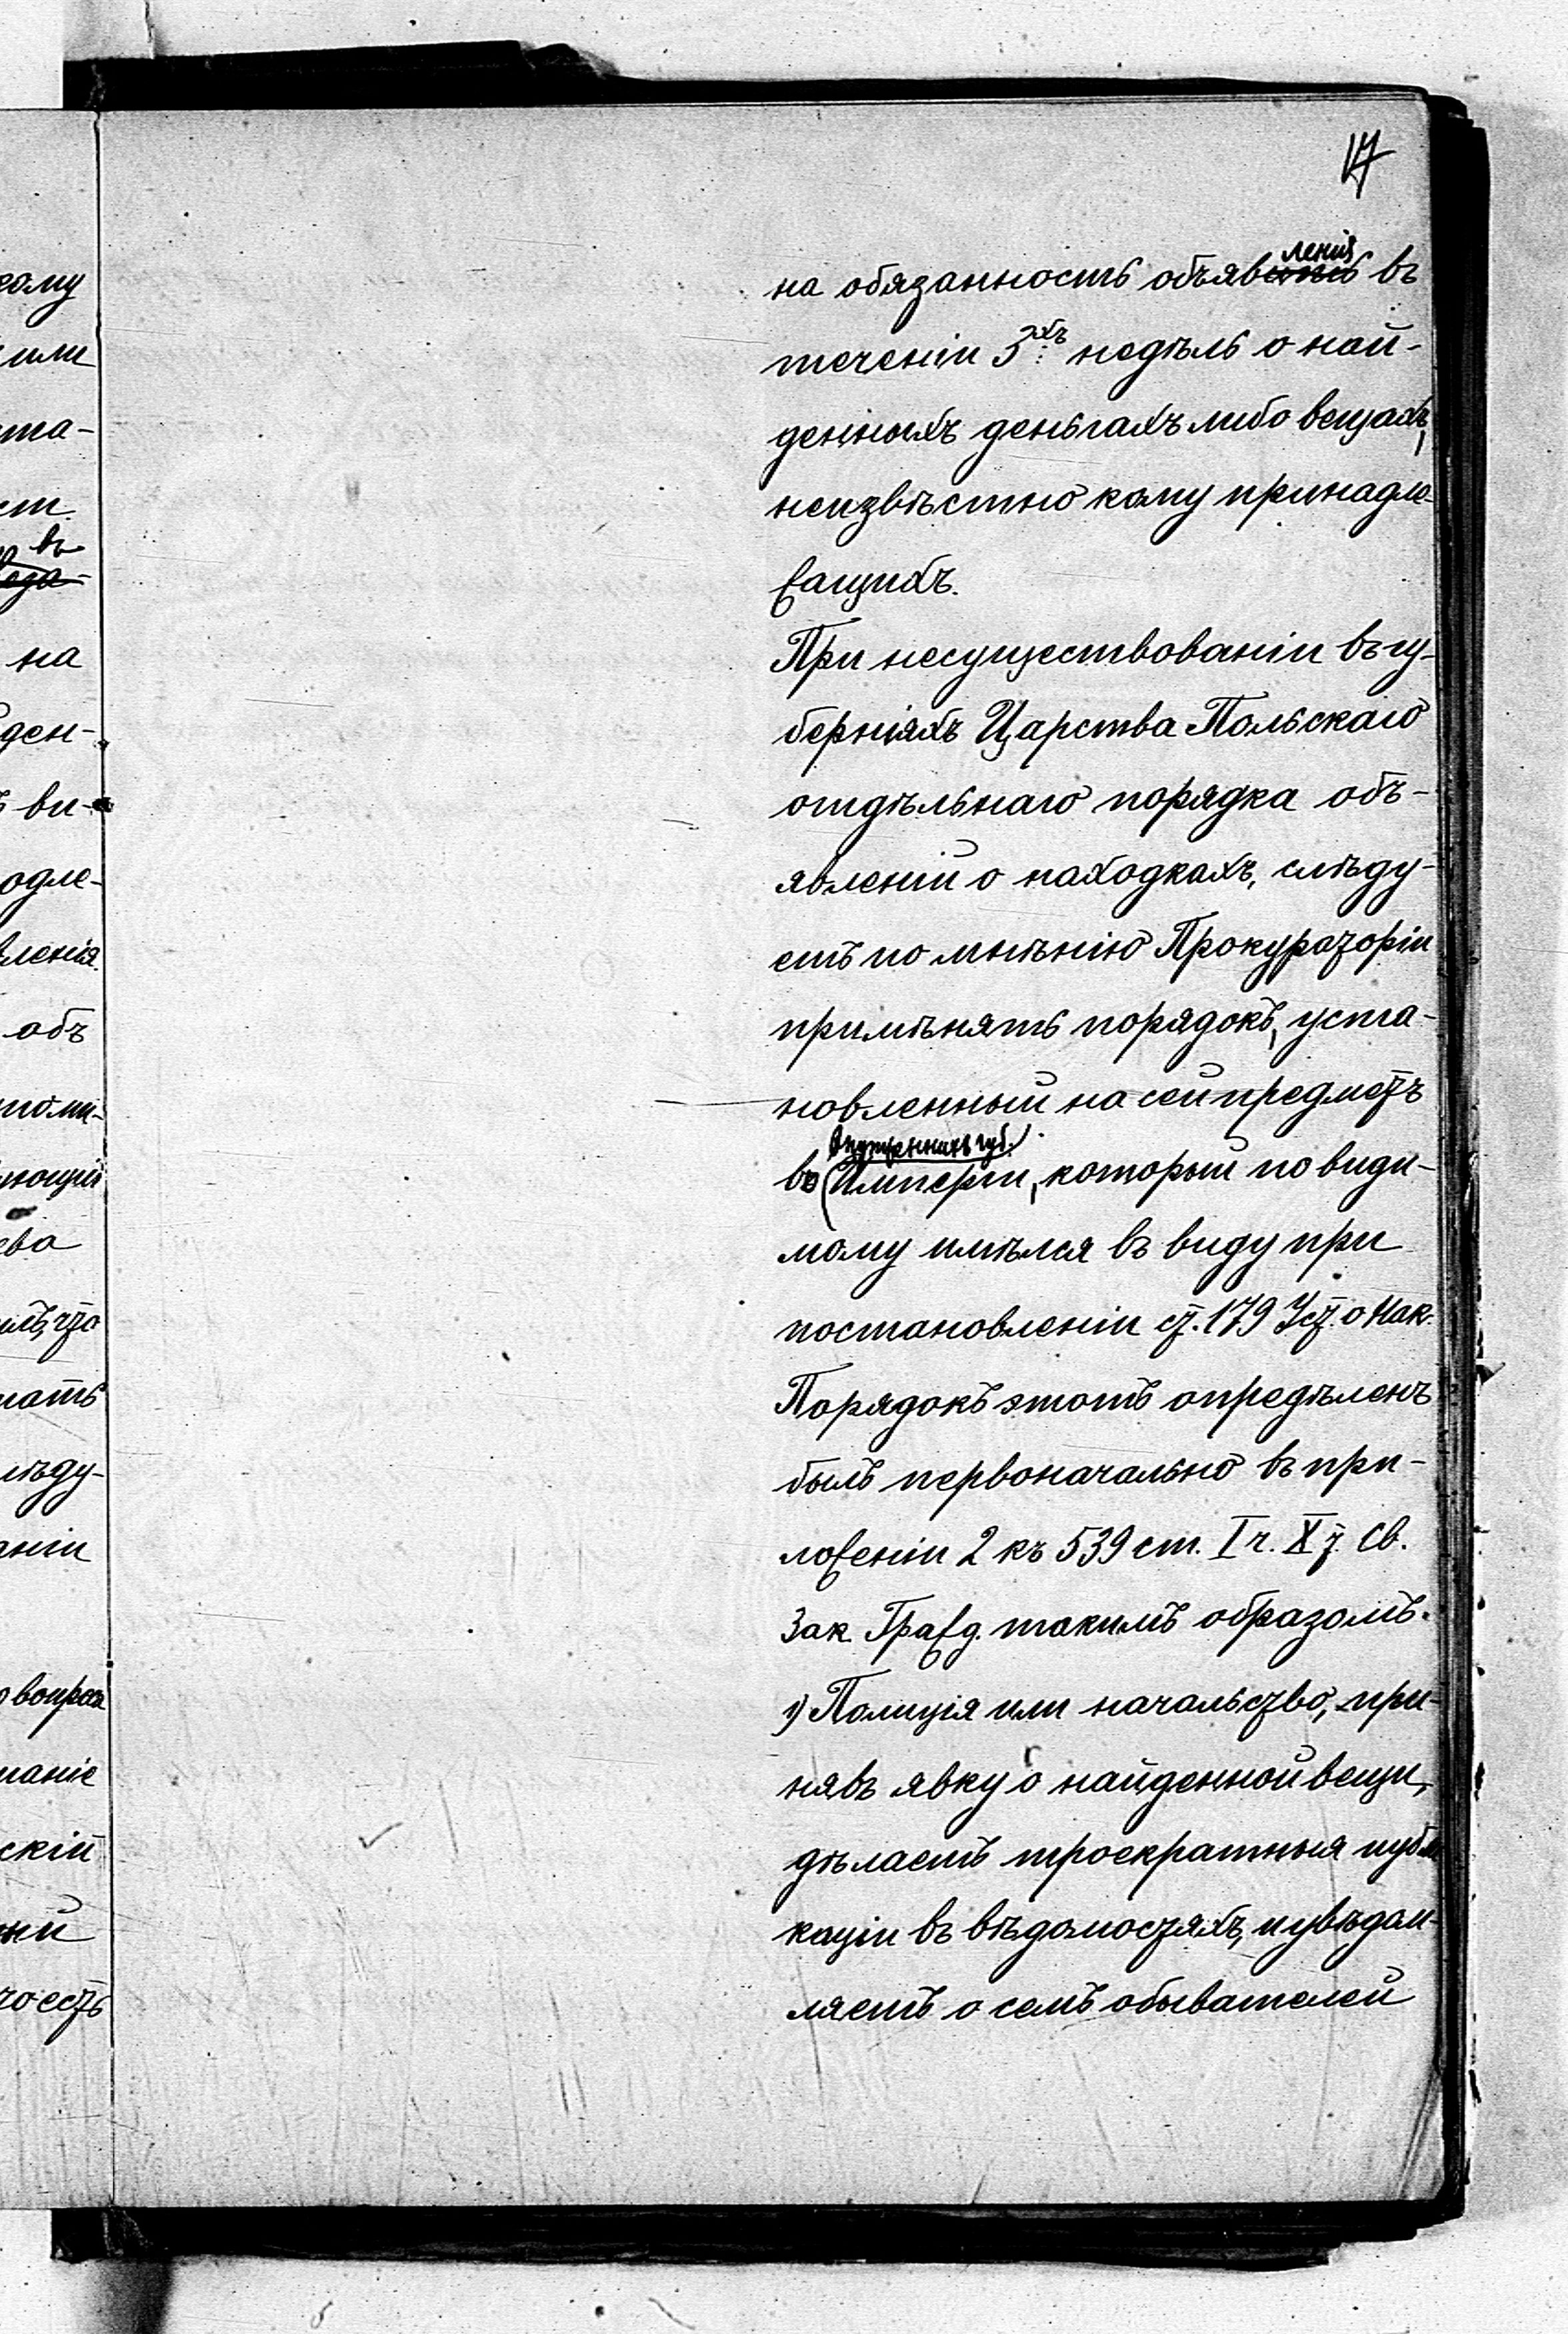 17
на обязанность объявленія въ
теченіи 3хъ недѣль о най-
денныхъ деньгахъ либо вещахъ,
неизвѣстно кому принадле-
жащихъ.
При несуществованіи въ гу-
берніяхъ Царства Польскаго
отдѣльнаго порядка объ-
явленій о находкахъ, слѣду-
етъ по мнѣнію Прокураторіи
примѣнять порядокъ, уста-
новленный на сей предметъ
внутреннихъ губ.
во Имперіи, который по види-
мому имѣлся въ виду при
постановленіи ст. 179 Уст. о Нак.
Порядокъ этотъ опредѣленъ
былъ первоначально въ при-
ложеніи 2 къ 539 ст. I ч. X т. Св.
Зак. Гражд. такимъ образомъ.
1) Полиція или начальство, при-
нявъ явку о найденной вещи,
дѣлаетъ троекратныя публи
каціи въ вѣдомостяхъ, и увѣдом-
ляетъ о семъ обывателей